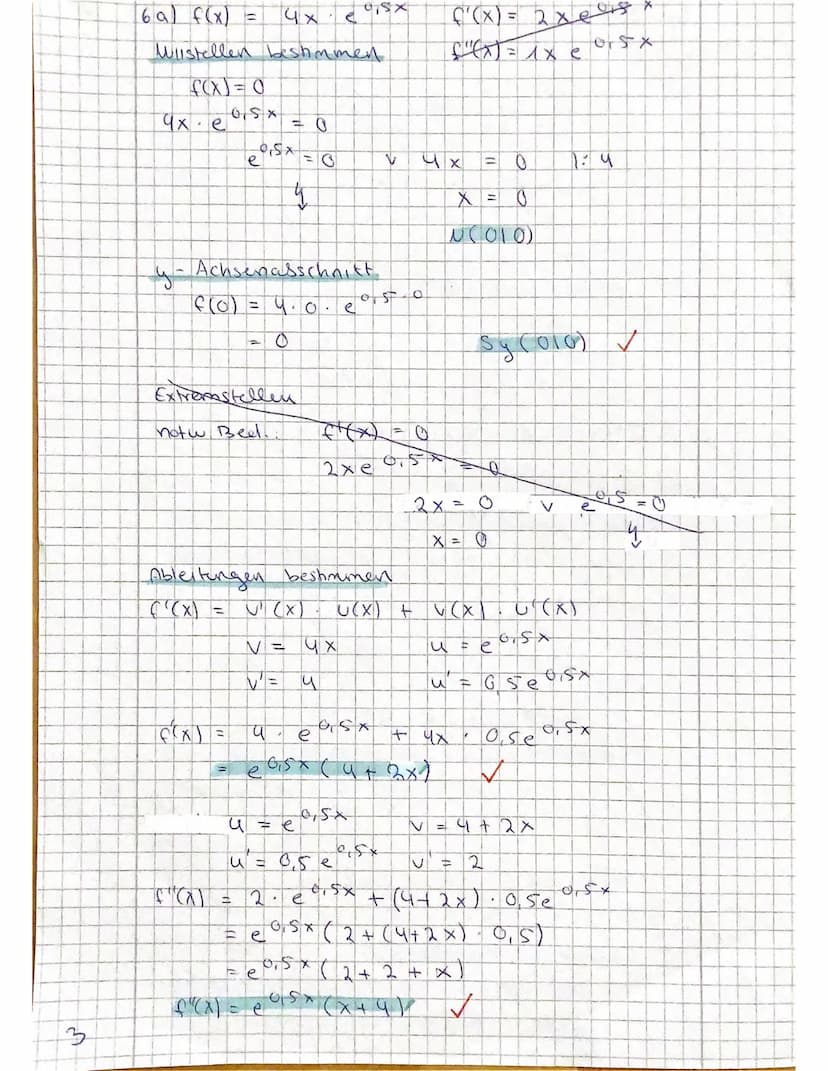 6a) f(x) = 4x · e^0,5x f'(x) = 2xe^0,5x
Nullstellen bestimmen f''(x) = 1x e^0,5x
f(x) = 0
4x · e^0,5x = 0
e^0,5x = 0 v 4x = 0 |: 4
↯ x = 0
N(0|0)
y-Achsenabschnitt
f(0) = 4 · 0 · e^0,5·0
= 0 Sy(0|0) ✓
Extremstellen
notw Bed.: f'(x) = 0
2xe^0,5x = 0
2x = 0 v e^0,5 = 0
x = 0 ↯
Ableitungen bestimmen
f'(x) = v'(x) · u(x) + v(x) · u'(x)
v = 4x u = e^0,5x
v' = 4 u' = 0,5e^0,5x
f'(x) = 4 · e^0,5x + 4x · 0,5e^0,5x
= e^0,5x (4 + 2x) ✓
u = e^0,5x v = 4 + 2x
u' = 0,5 e^0,5x v' = 2
f''(x) = 2 · e^0,5x + (4+2x) · 0,5e^0,5x
= e^0,5x (2 + (4+2x) · 0,5)
= e^0,5x (2 + 2 + x)
f''(x) = e^0,5x (x+4) ✓
3